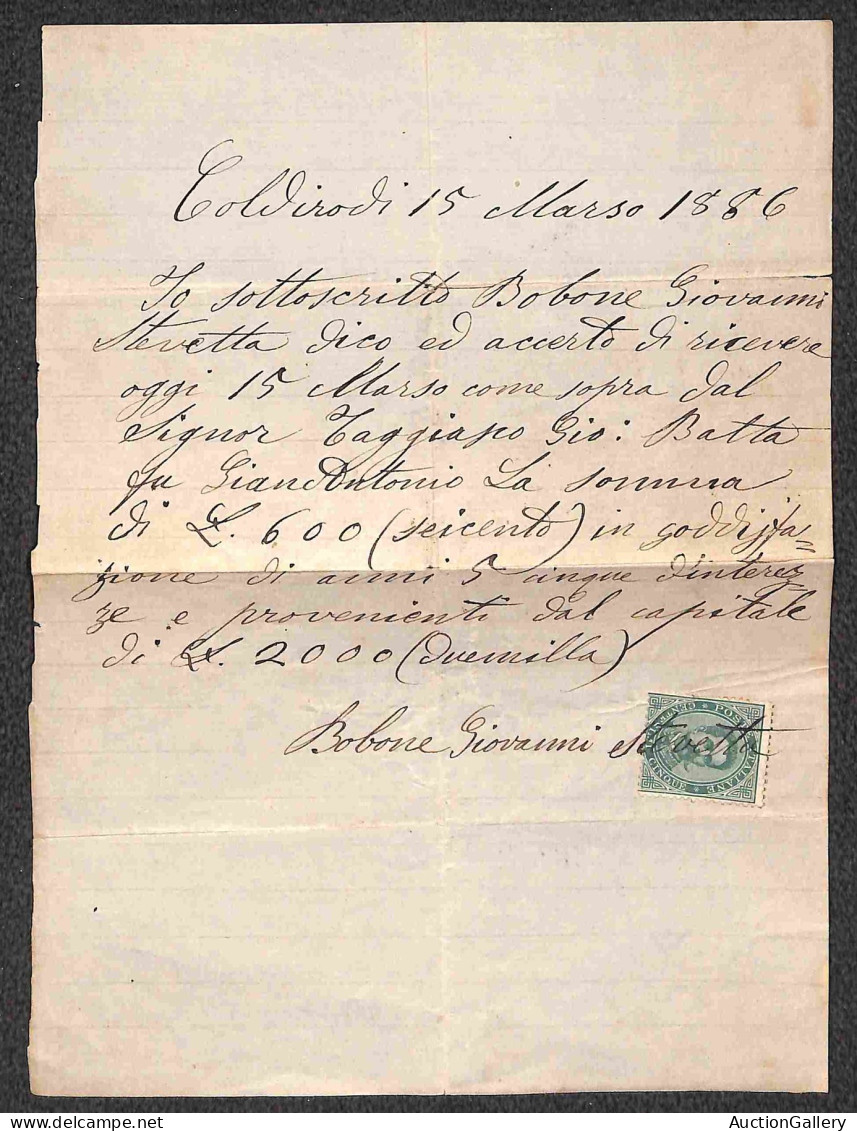 Coldirodi 15 Marso 1886
Io sottoscritto Bobone Giovanni
Stevetta dico ed accerto di ricevere
oggi 15 Marso come sopra dal
Signor Taggiasco Gio: Batta
fu GianAntonio La somma
di £. 600 (seicento) in soddisfa=
zione di anni 5 cinque d'interez=
ze e provenienti dal capitale
di £. 2000 (duemilla)
Bobone Giovanni Stevetta
POSTE ITALIANE
CINQUE
AuctionGallery